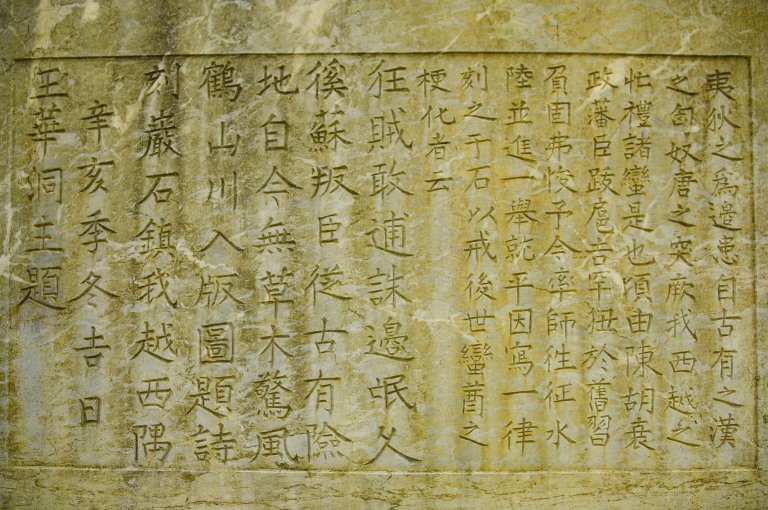 夷狄之爲邊患自古有之漢
之匈奴唐之突厥我西越之
忙禮諸蠻是也頃由陳胡衰
政藩臣跋扈吉罕狃於舊習
負固弗悛予今率師徃征水
陸並進一舉就平因寫一律
刻之于石以戒後世蠻酋之
梗化者云
狂賊敢逋誅邊氓久
徯蘇叛臣從古有險
地自今無草木驚風
鶴山川入版圖題詩
刻巖石鎮我越西隅
辛亥季冬吉日
玉華洞主題